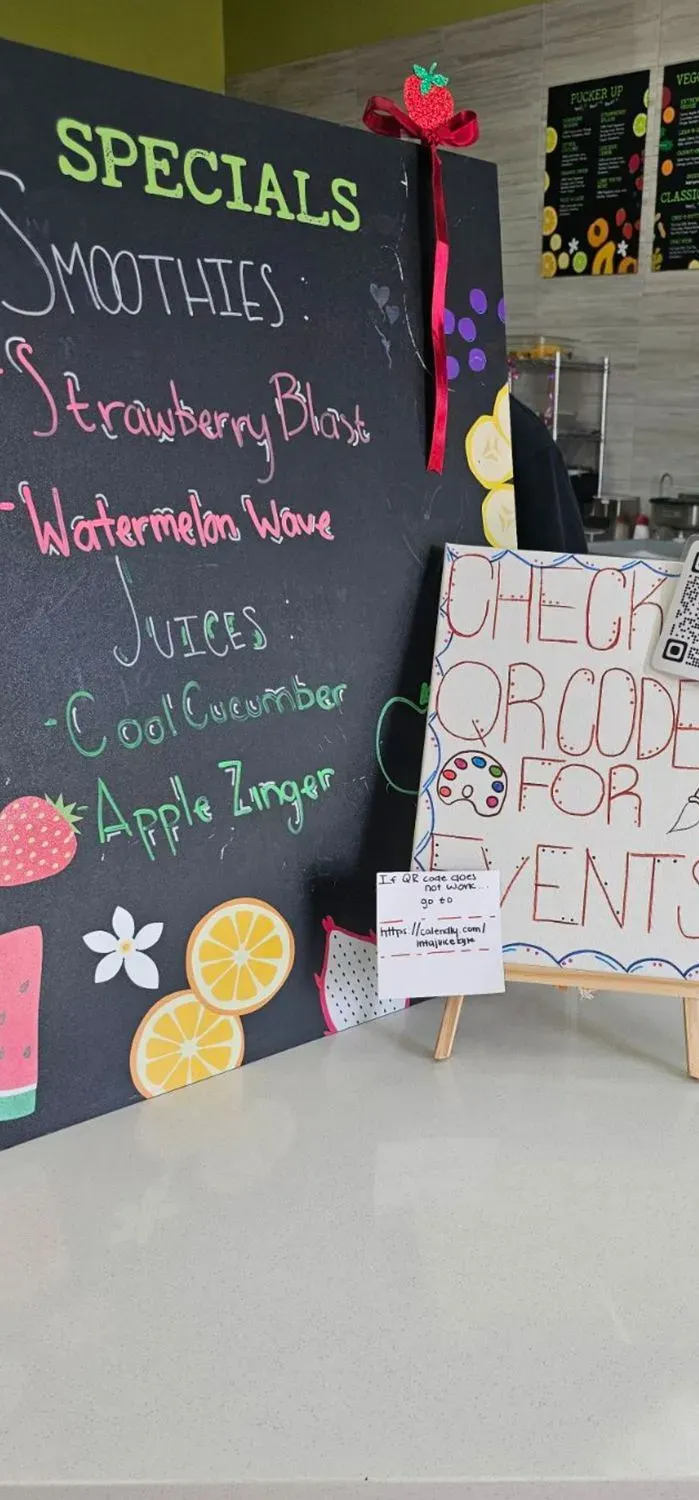 SPECIALS
SMOOTHIES:
-Strawberry Blast
-Watermelon Wave
JUICES:
-Cool Cucumber
-Apple Zinger
PUCKER UP
VEGG
CLASSIC
CHECK
QR CODE
FOR
EVENTS
If QR code does
not work...
go to
https://calendly.com/